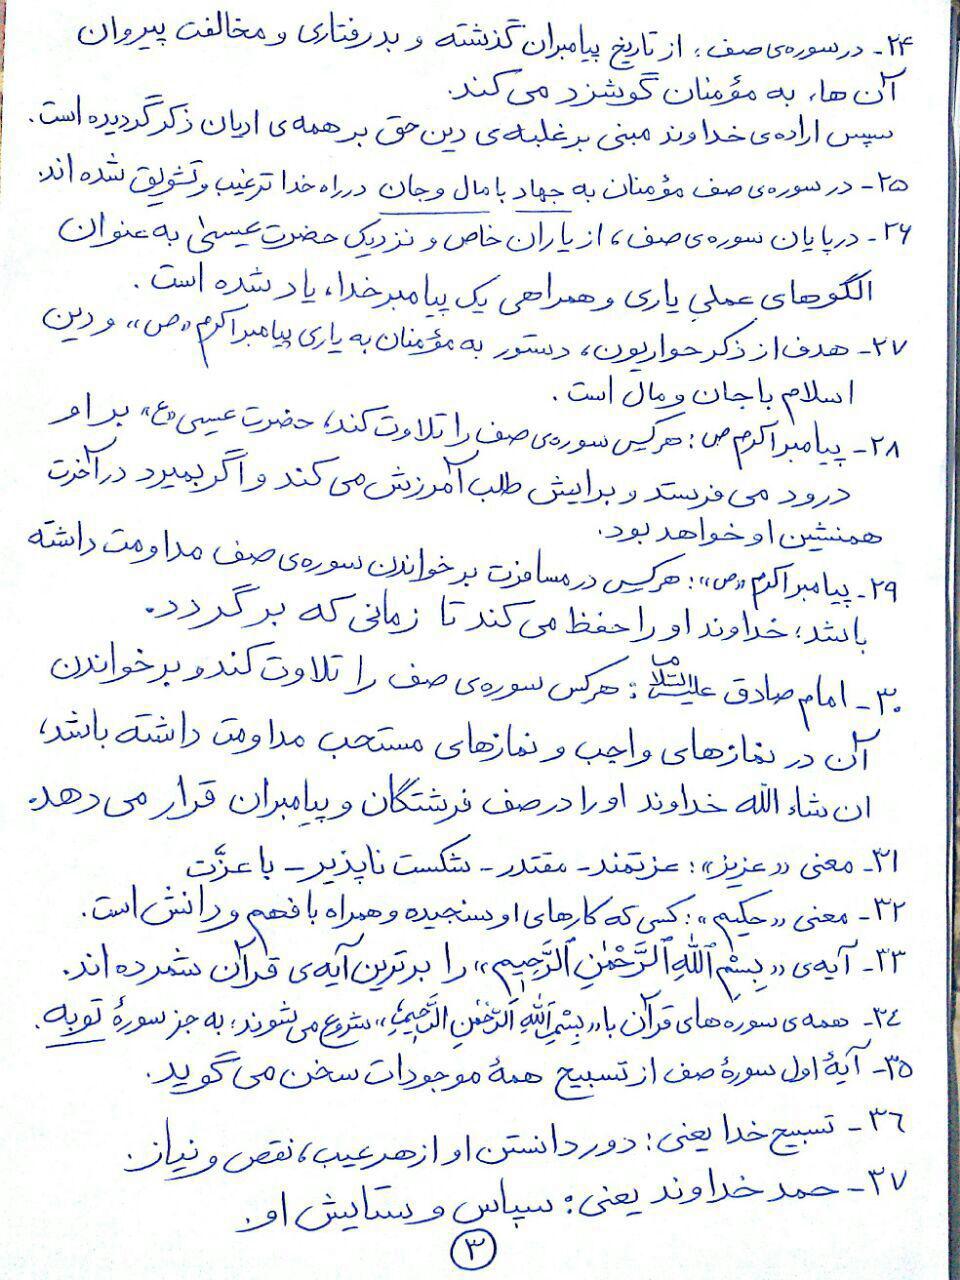 ۲۴- در سوره‌ی صف، از تاریخ پیامبران گذشته و بدرفتاری و مخالفت پیروان
آن ها، به مؤمنان گوشزد می کند.
سپس اراده‌ی خداوند مبنی بر غلبه‌ی دین حق بر همه‌ی ادیان ذکر گردیده است.
۲۵- در سوره‌ی صف مؤمنان به جهاد با مال و جان در راه خدا ترغیب و تشویق شده اند.
۲۶- در پایان سوره‌ی صف، از یاران خاص و نزدیک حضرت عیسیٰ به عنوان
الگوهای عملیِ یاری و همراهی یک پیامبر خدا، یاد شده است.
۲۷- هدف از ذکر حواریون، دستور به مؤمنان به یاری پیامبر اکرم «ص» و دین
اسلام با جان و مال است.
۲۸- پیامبر اکرم ص: هرکس سوره‌ی صف را تلاوت کند، حضرت عیسی «ع» بر او
درود می فرستد و برایش طلب آمرزش می کند و اگر بمیرد در آخرت
همنشین او خواهد بود.
۲۹- پیامبر اکرم «ص»: هرکس در مسافرت بر خواندن سوره‌ی صف مداومت داشته
باشد؛ خداوند او را حفظ می کند تا زمانی که بر گردد.
۳۰- امام صادق علیه السلام: هرکس سوره‌ی صف را تلاوت کند و بر خواندن
آن در نمازهای واجب و نمازهای مستحب مداومت داشته باشد،
ان شاء الله خداوند او را در صف فرشتگان و پیامبران قرار می دهد.
۳۱- معنی «عزیز»: عزتمند - مقتدر - شکست ناپذیر - با عزّت
۳۲- معنی «حکیم»: کسی که کارهای او سنجیده و همراه با فهم و دانش است.
۳۳- آیه‌ی «بِسْمِ ٱللهِ ٱلرَّحْمٰنِ ٱلرَّحِیمِ» را برترین آیه‌ی قرآن شمرده اند.
۳۴- همه‌ی سوره های قرآن با «بِسْمِ ٱللهِ ٱلرَّحْمٰنِ ٱلرَّحِیمِ» شروع می شوند؛ به جز سورۀ توبه.
۳۵- آیۀ اول سورۀ صف از تسبیح همۀ موجودات سخن می گوید.
۳۶- تسبیح خدا یعنی: دور دانستن او از هر عیب، نقص و نیاز.
۳۷- حمد خداوند یعنی: سپاس و ستایش او.
۳